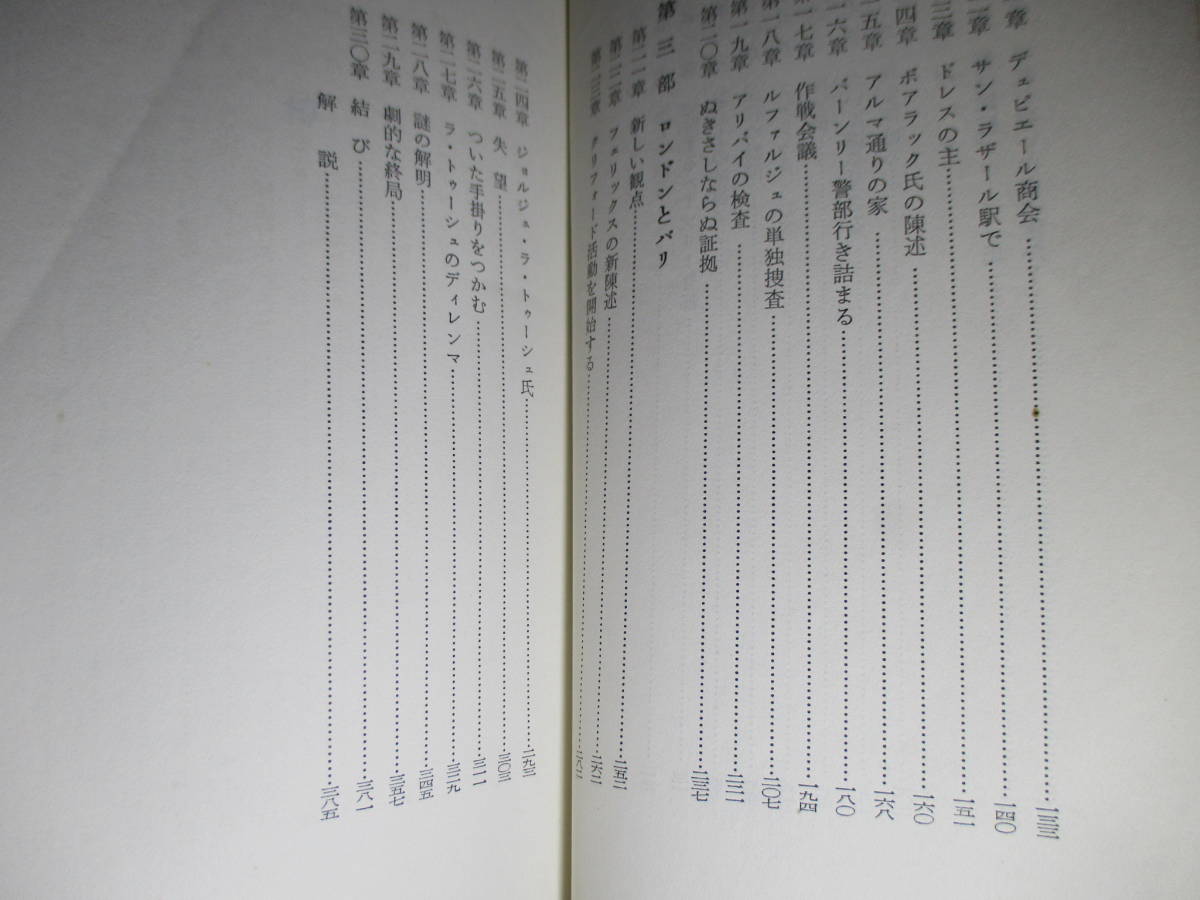 章 デュピエール商会……一三三
二章 サン・ラザール駅で……一四〇
三章 ドレスの主……一五一
四章 ボアラック氏の陳述……一六〇
一五章 アルマ通りの家……一六八
一六章 バーンリー警部行き詰まる……一八〇
一七章 作戦会議……一九四
一八章 ルファルジュの単独捜査……二〇七
第一九章 アリバイの検査……二二一
第二〇章 ぬきさしならぬ証拠……二三七
第三部 ロンドンとパリ
第二一章 新しい観点……二五二
第二二章 フェリックスの新陳述……二六二
第二三章 クリフォード活動を開始する……二八二
第二四章 ジョルジュ・ラ・トゥーシュ氏……二九三
第二五章 失望……三〇三
第二六章 ついた手掛りをつかむ……三一一
第二七章 ラ・トゥーシュのディレンマ……三二九
第二八章 謎の解明……三四五
第二九章 劇的な終局……三五七
第三〇章 結び……三八一
解説……三八五